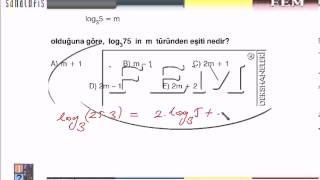 log₃5 = m
olduğuna göre, log₃75 in m türünden eşiti nedir?
A) m + 1 B) m + 2 C) 2m + 1
D) 2m – 1 E) 2m + 2
FEM
DERSHANELERİ
log₃(25.3) = 2.log₃5 +